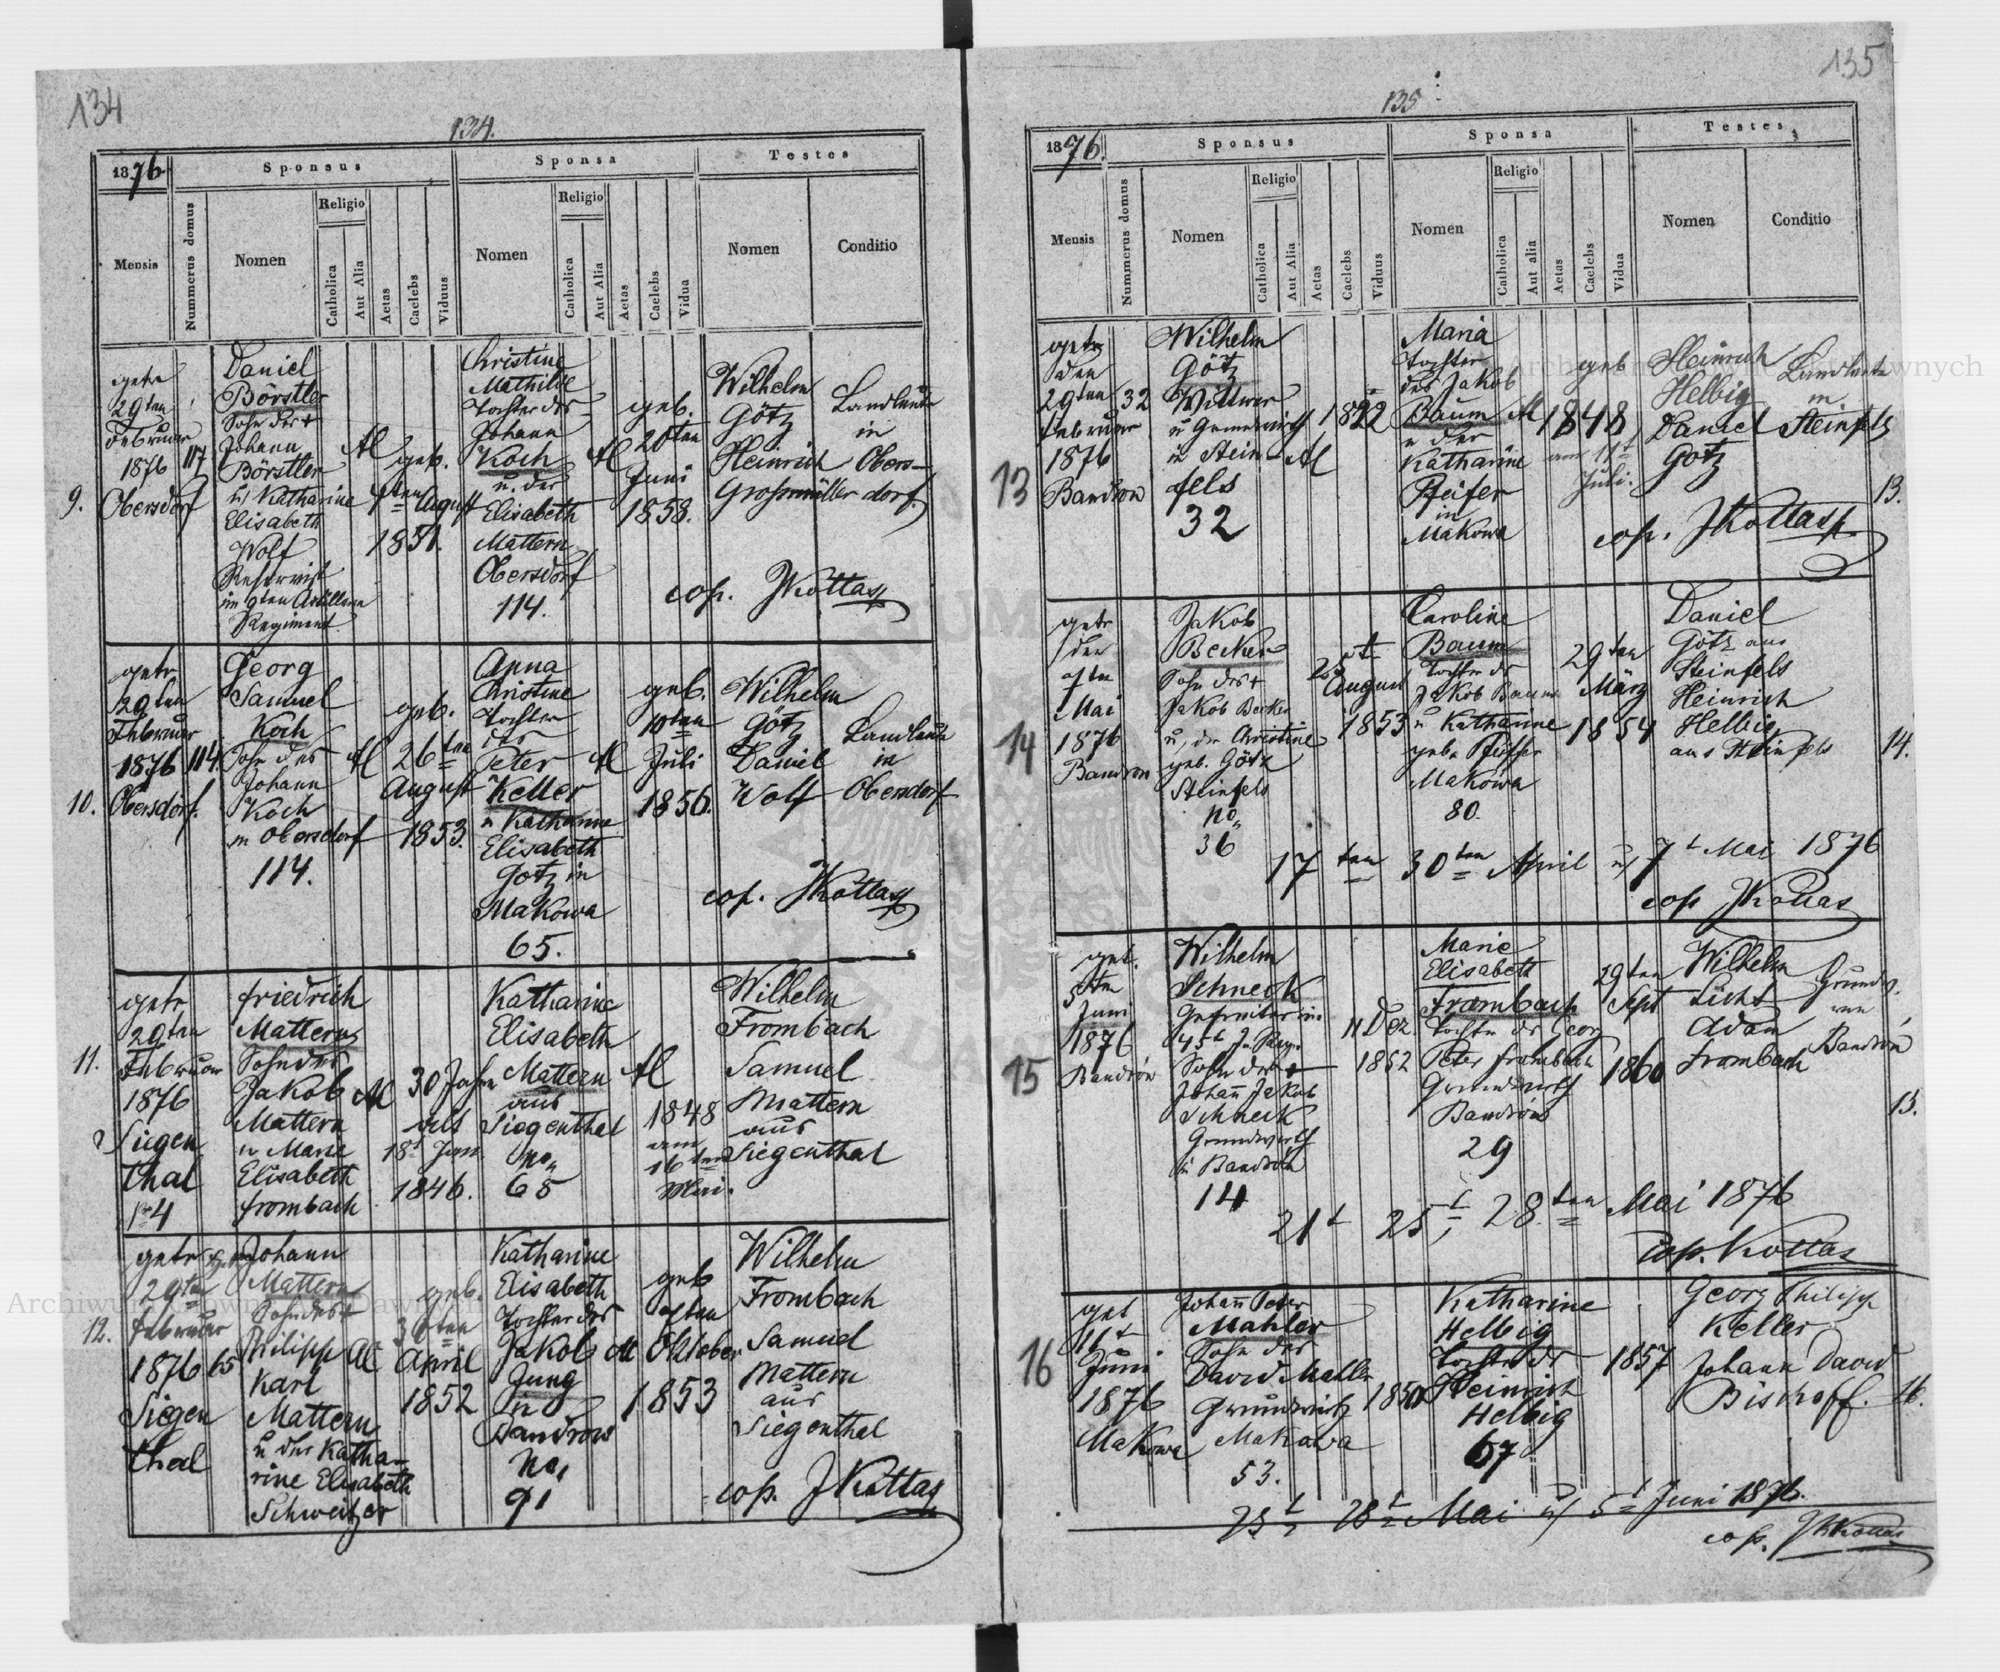 134
134.
1876
Sponsus
Sponsa
Testes
Mensis
Nummerus domus
Nomen
Religio
Catholica
Aut Alia
Aetas
Caelebs
Viduus
Nomen
Religio
Catholica
Aut Alia
Aetas
Caelebs
Vidua
Nomen
Conditio
9.
getr
29ten
Februar
1876
Obersdorf
117
Daniel
Börstler
Sohn des +
Johann
Börstler
u. Katharine
Elisabeth
Wolf
Reservist
im 9ten Artillerie
Regiment
Al
geb.
August
1851.
Christine
Mathilde
Tochter des
Johann
Koch
u. der
Elisabeth
Mattern
Obersdorf
114.
Al
geb.
20ten
Juni
1858.
Wilhelm
Götz
Heinrich
Grossmüller
Landleute
in
Obers-
dorf.
cop. JKottas
10.
getr
29ten
Februar
1876
Obersdorf.
114
Georg
Samuel
Koch
Sohn des
Johann
Koch
in Obersdorf
114.
Al
geb.
26ten
August
1853.
Anna
Christine
Tochter
des
Peter
Keller
u Katharine
Elisabeth
Götz in
Makowa
65.
Al
geb.
10ten
Juli
1856.
Wilhelm
Götz
Daniel
Wolf
Landleute
in
Obersdorf
cop. JKottas
11.
getr
29ten
Februar
1876
Siegen
thal
Friedrich
Mattern
Sohn des
Jakob
Mattern
u Marie
Elisabeth
Frombach
Al
30 Jahre
alt
18t Jan
1846.
Katharine
Elisabeth
Mattern
aus
Siegenthal
No.
65
Al
1848
am
16ten
Mai.
Wilhelm
Frombach
Samuel
Mattern
aus
Siegenthal
12.
getr
29ten
Februar
1876
Siegen
thal
65
Johann
Mattern
Sohn des +
Philipp
Karl
Mattern
u der Katha-
rine Elisabeth
Schweitzer
Al
geb.
30ten
April
1852
Katharine
Elisabeth
Tochter des
Jakob
Jung
in
Bandrow
No.
91
Al
geb
7ten
Oktober
1853
Wilhelm
Frombach
Samuel
Mattern
aus
Siegenthal
cop. JKottas
135
135
1876.
Sponsus
Sponsa
Testes
Mensis
Nummerus domus
Nomen
Religio
Catholica
Aut Alia
Aetas
Caelebs
Viduus
Nomen
Religio
Catholica
Aut alia
Aetas
Caelebs
Vidua
Nomen
Conditio
13
getr
den
29ten
Februar
1876
Bandron
32
Wilhelm
Götz
Wittwer
u Grundwirth
in Stein
fels
32
Al
1822
Maria
Tochter
des Jakob
Baum
u der
Katharine
Pfeifer
in
Makowa
Al
geb
1848
am 11t
Juli.
Heinrich
Helbig
Daniel
Götz
Landleute
in
Steinfels
13.
cop. JKottas
14
getr
den
7ten
Mai
1876
Bandron
Jakob
Becker
Sohn des +
Jakob Becker
u, der Christine
geb. Götz
Steinfels
No.
36
August
1853
Caroline
Baum
Tochter des
Jakob Baum
u Katharine
geb. Pfeifer
Makowa
80.
29ten
März
1854
Daniel
Götz aus
Steinfels
Heinrich
Helbig
aus Steinfels
14.
17ten 30ten April u/ 7t Mai 1876
cop JKottas
15
get.
5ten
Juni
1876
Bandrón
Wilhelm
Schneck
Gefreiter im
45t J. Reg.
Sohn des +
Johan̄ Jakob
Schneck
Grundwirth
in Bandrón
14
11 Dez
1852
Marie
Elisabeth
Frambach
Tochter des Georg
Peter Frombach
Grundwirth
Bandrón
29
29ten
Sept
1860
Wilhelm
Licht
Adam
Frombach
Grundw.
von
Bandrón
15.
21t 25t, 28ten Mai 1876
cop. Kottas
16
get
11t
Juni
1876
Makowa
Johan̄ Peter
Mahler
Sohn des
David Mahler
Grundwirth
Makowa
53.
1850
Katharine
Helbig
Tochter des
Heinrich
Helbig
67
1857
Georg Philipp
Keller
Johann David
Bischoff.
16.
25t 28t Mai u/ 5t Juni 1876.
cop. JKottas
Archiwum Główne Akt Dawnych
Archiwum Główne Akt Dawnych